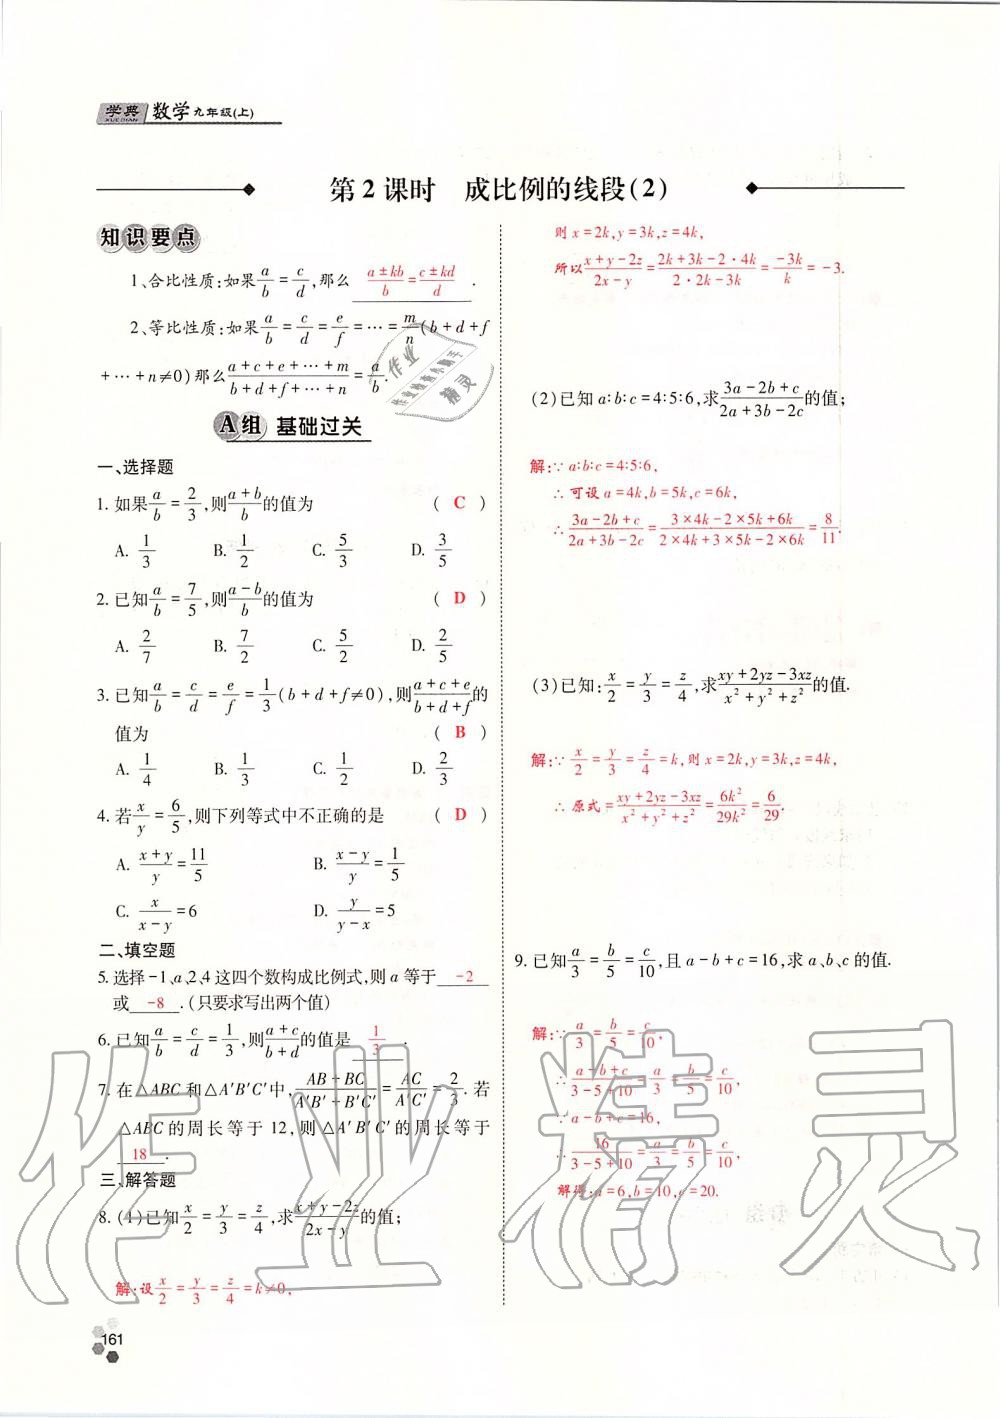 学典 数学九年级(上)
XUE DIAN
第2课时 成比例的线段(2)
知识要点
1、合比性质:如果a/b=c/d,那么 (a±kb)/b=(c±kd)/d .
2、等比性质:如果a/b=c/d=e/f=…=m/n(b+d+f
+…+n≠0)那么(a+c+e+…+m)/(b+d+f+…+n)=a/b.
A组 基础过关
一、选择题
1. 如果a/b=2/3,则(a+b)/b的值为 ( C )
A. 1/3 B. 1/2 C. 5/3 D. 3/5
2. 已知a/b=7/5,则(a-b)/b的值为 ( D )
A. 2/7 B. 7/2 C. 5/2 D. 2/5
3. 已知a/b=c/d=e/f=1/3(b+d+f≠0),则(a+c+e)/(b+d+f)的
值为 ( B )
A. 1/4 B. 1/3 C. 1/2 D. 2/3
4. 若x/y=6/5,则下列等式中不正确的是 ( D )
A. (x+y)/y=11/5 B. (x-y)/y=1/5
C. x/(x-y)=6 D. y/(y-x)=5
二、填空题
5. 选择-1、a、2、4这四个数构成比例式,则a等于 -2
或 -8 .(只要求写出两个值)
6. 已知a/b=c/d=1/3,则(a+c)/(b+d)的值是 1/3 .
7. 在△ABC和△A′B′C′中,(AB+BC)/(A′B′+B′C′)=AC/A′C′=2/3.若
△ABC的周长等于12,则△A′B′C′的周长等于
18 .
三、解答题
8. (1)已知x/2=y/3=z/4,求(x+y-2z)/(2x-y)的值;
解:设x/2=y/3=z/4=k≠0,
161
则x=2k,y=3k,z=4k,
所以(x+y-2z)/(2x-y)=(2k+3k-2·4k)/(2·2k-3k)=-3k/k=-3.
(2)已知a∶b∶c=4∶5∶6,求(3a-2b+c)/(2a+3b-2c)的值;
解:∵a∶b∶c=4∶5∶6,
∴可设a=4k,b=5k,c=6k,
∴(3a-2b+c)/(2a+3b-2c)=(3×4k-2×5k+6k)/(2×4k+3×5k-2×6k)=8/11.
(3)已知:x/2=y/3=z/4,求(xy+2yz-3xz)/(x²+y²+z²)的值.
解:∵x/2=y/3=z/4=k,则x=2k,y=3k,z=4k,
∴原式=(xy+2yz-3xz)/(x²+y²+z²)=6k²/29k²=6/29.
9. 已知a/3=b/5=c/10,且a-b+c=16,求a、b、c的值.
解:∵a/3=b/5=c/10,
∴(a-b+c)/(3-5+10)=a/3=b/5=c/10,
∵a-b+c=16,
∴16/(3-5+10)=a/3=b/5=c/10,
解得:a=6,b=10,c=20.
作业精灵